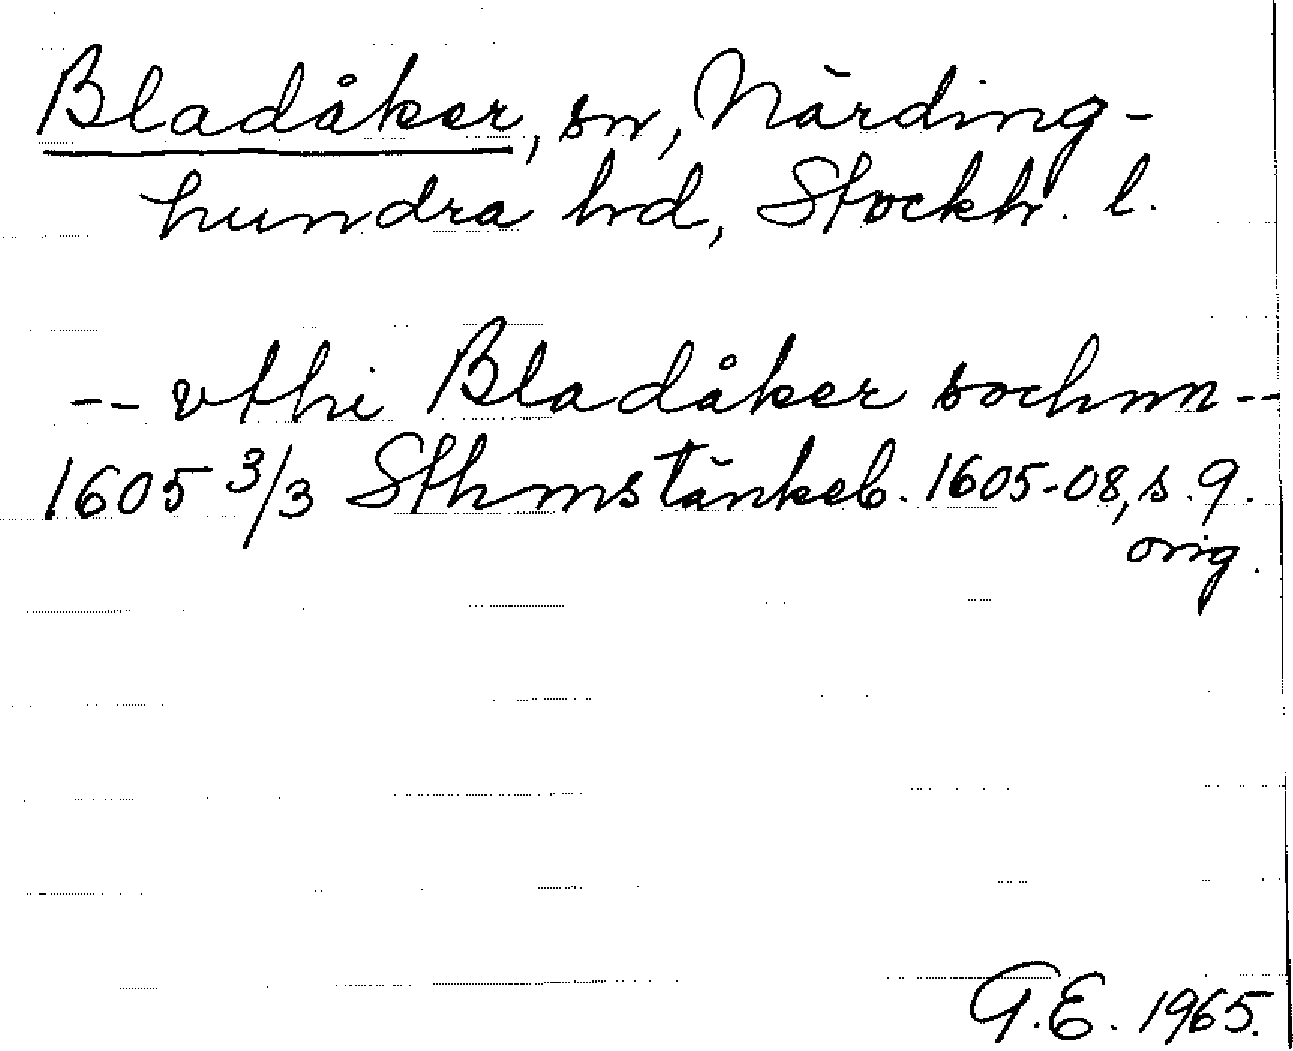 Bladåker, sn, Närding-
hundra hd, Stockh. l.
-- vthi Bladåker sochnn --
1605 3/3 Sthms tänkeb. 1605-08, s. 9.
orig.
G.E. 1965.